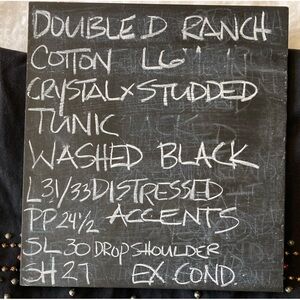 DOUBLE D RANCH
COTTON LG
CRYSTAL & STUDDED
TUNIC
WASHED BLACK
L31/33 DISTRESSED
PP 24½ ACCENTS
SL 30 DROP SHOULDER
SH 27 EX COND.